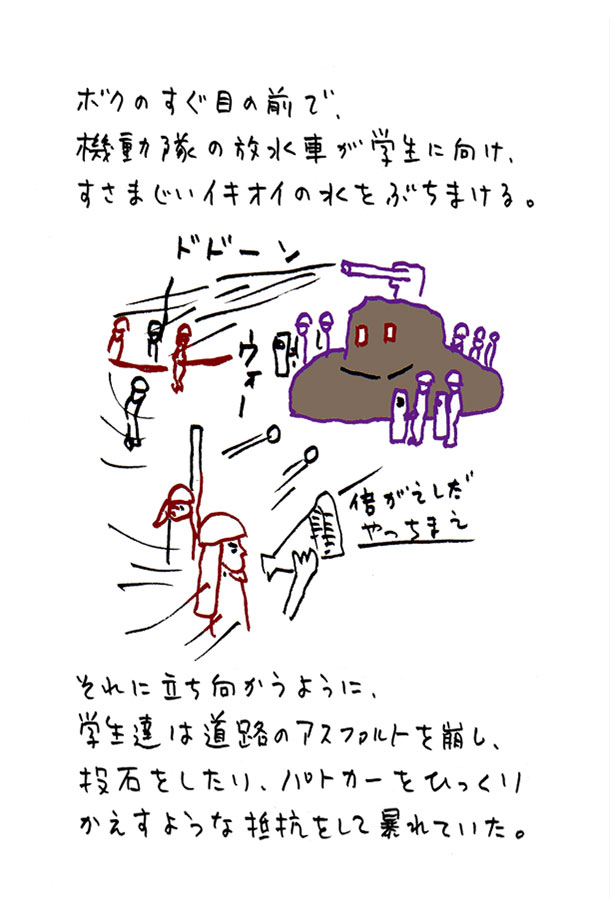 ボクのすぐ目の前で、
機動隊の放水車が学生に向け、
すさまじいイキオイの水をぶちまける。
ドドーン
ウォー
倍がえしだ
やっちまえ
それに立ち向かうように、
学生達は道路のアスファルトを崩し、
投石をしたり、パトカーをひっくり
かえすような抵抗をして暴れていた。